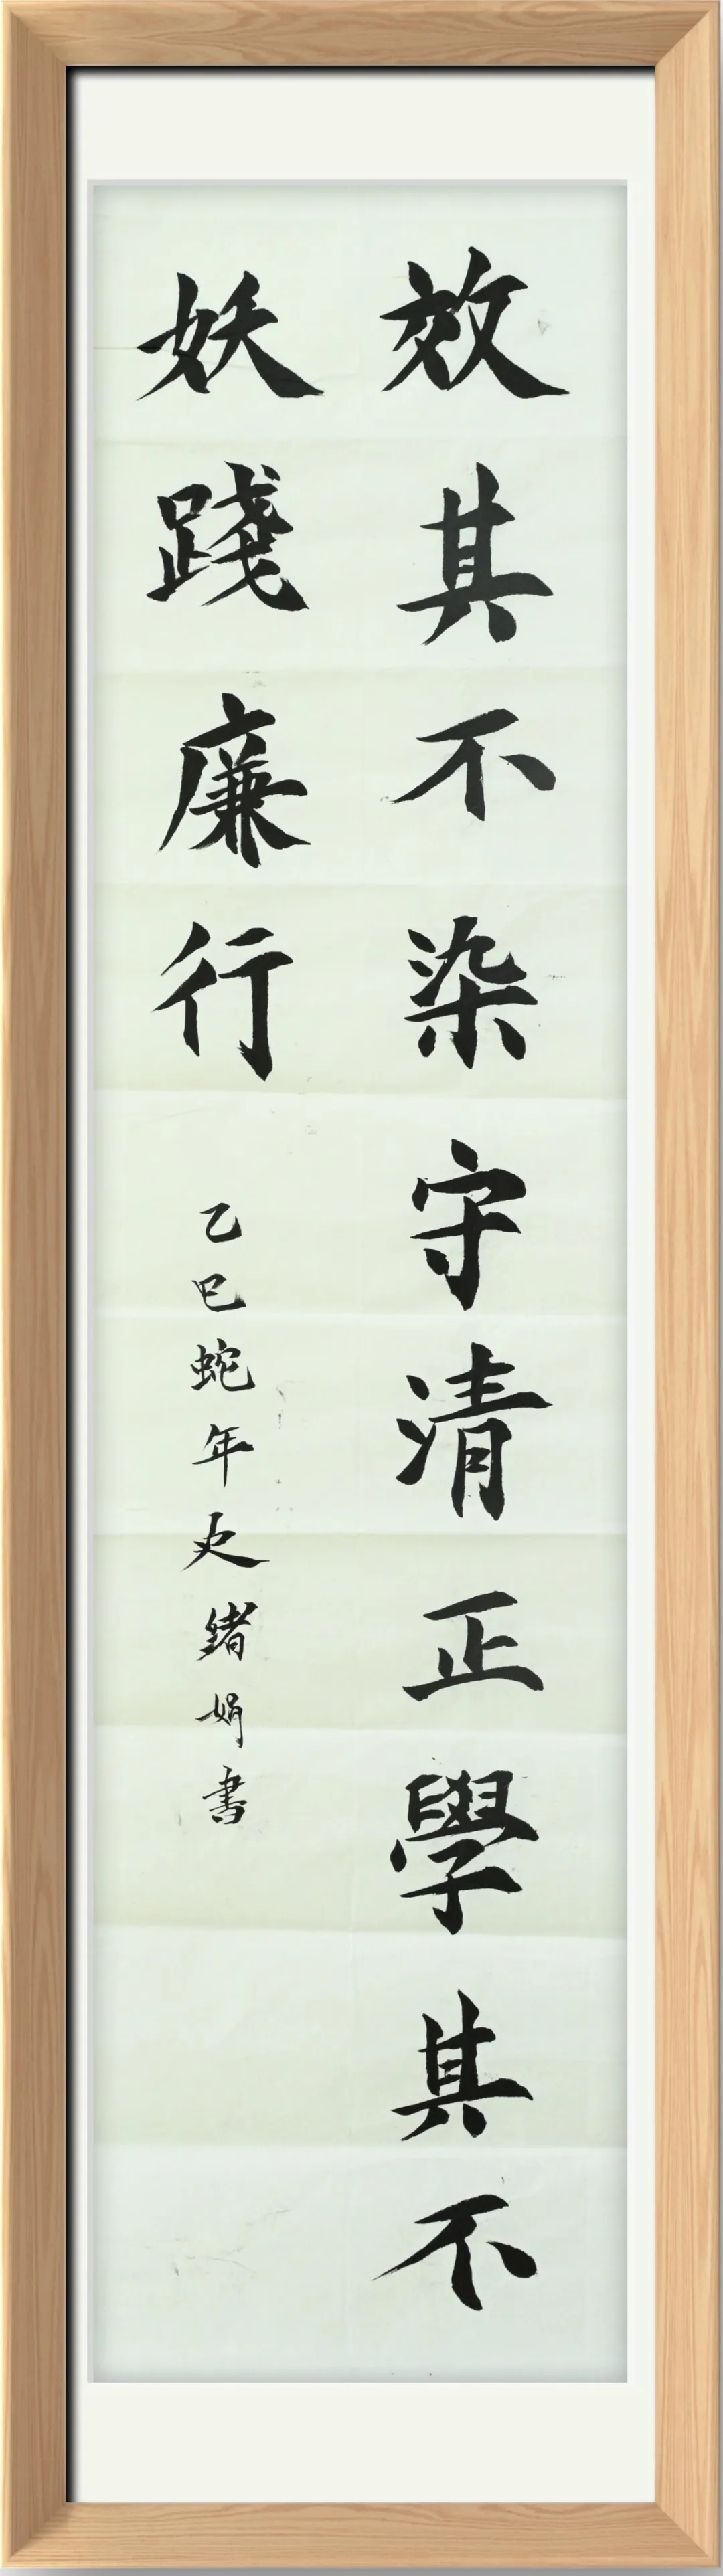 效其不染守清正學其不
妖踐廉行
乙巳蛇年史緒娟書